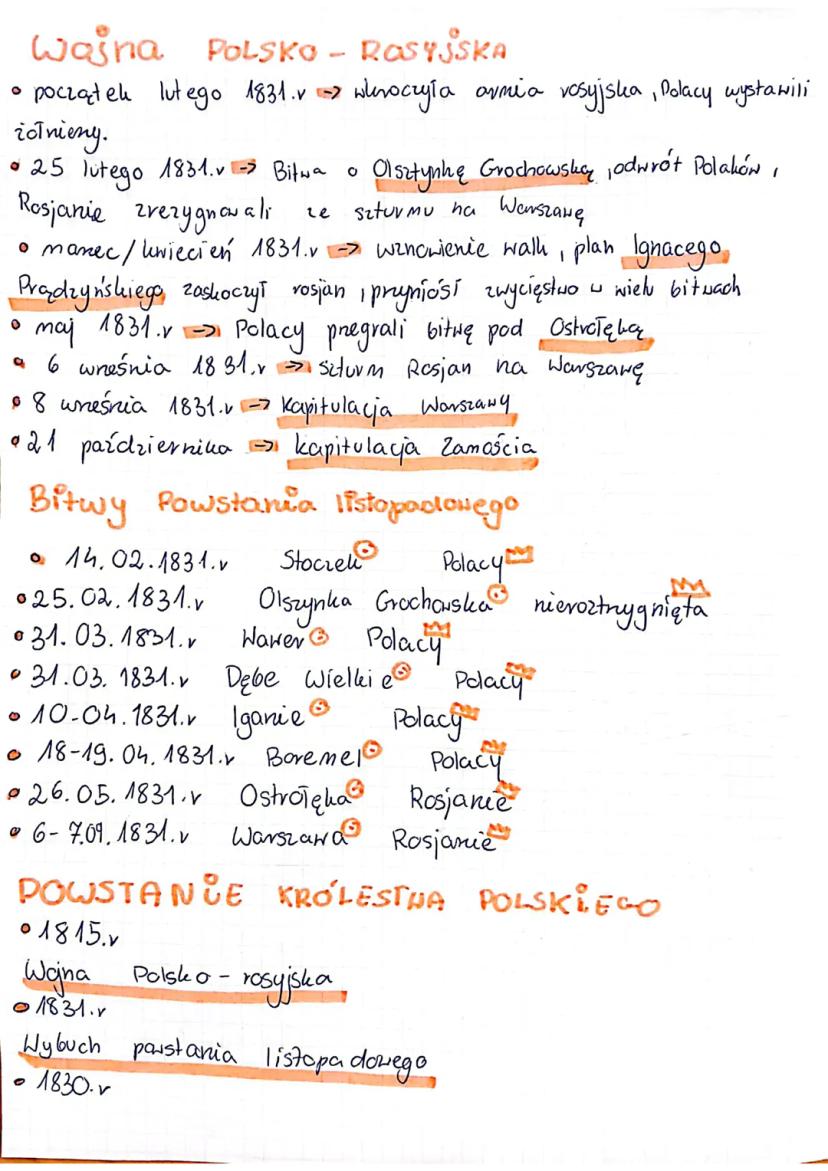 Wojna POLSKO - ROSYJSKA
• początek lutego 1831.r → wkroczyła armia rosyjska, Polacy wystawili
żołnierzy.
• 25 lutego 1831.r → Bitwa o Olsztynkę Grochowską, odwrót Polaków,
Rosjanie zrezygnowali ze szturmu na Warszawę
• marzec/kwiecień 1831.r → wznowienie walk, plan Ignacego
Prądzyńskiego zaskoczył rosjan, przyniósł zwycięstwo w wielu bitwach
• maj 1831.r → Polacy przegrali bitwę pod Ostrołęką
• 6 września 1831.r → szturm Rosjan na Warszawę
• 8 września 1831.r → Kapitulacja Warszawy
• 21 października → kapitulacja Zamościa
Bitwy Powstania listopadowego
• 14.02.1831.r Stoczek Polacy
• 25.02.1831.r Olszynka Grochowska nieroztrzygnięta
• 31.03.1831.r Wawer Polacy
• 31.03.1831.r Dębe Wielkie Polacy
• 10.04.1831.r Iganie Polacy
• 18-19.04.1831.r Boremel Polacy
• 26.05.1831.r Ostrołęka Rosjanie
• 6-7.09.1831.r Warszawa Rosjanie
POWSTANIE KRÓLESTWA POLSKIEGO
• 1815.r
Wojna Polsko - rosyjska
• 1831.r
Wybuch powstania listopadowego
• 1830.r